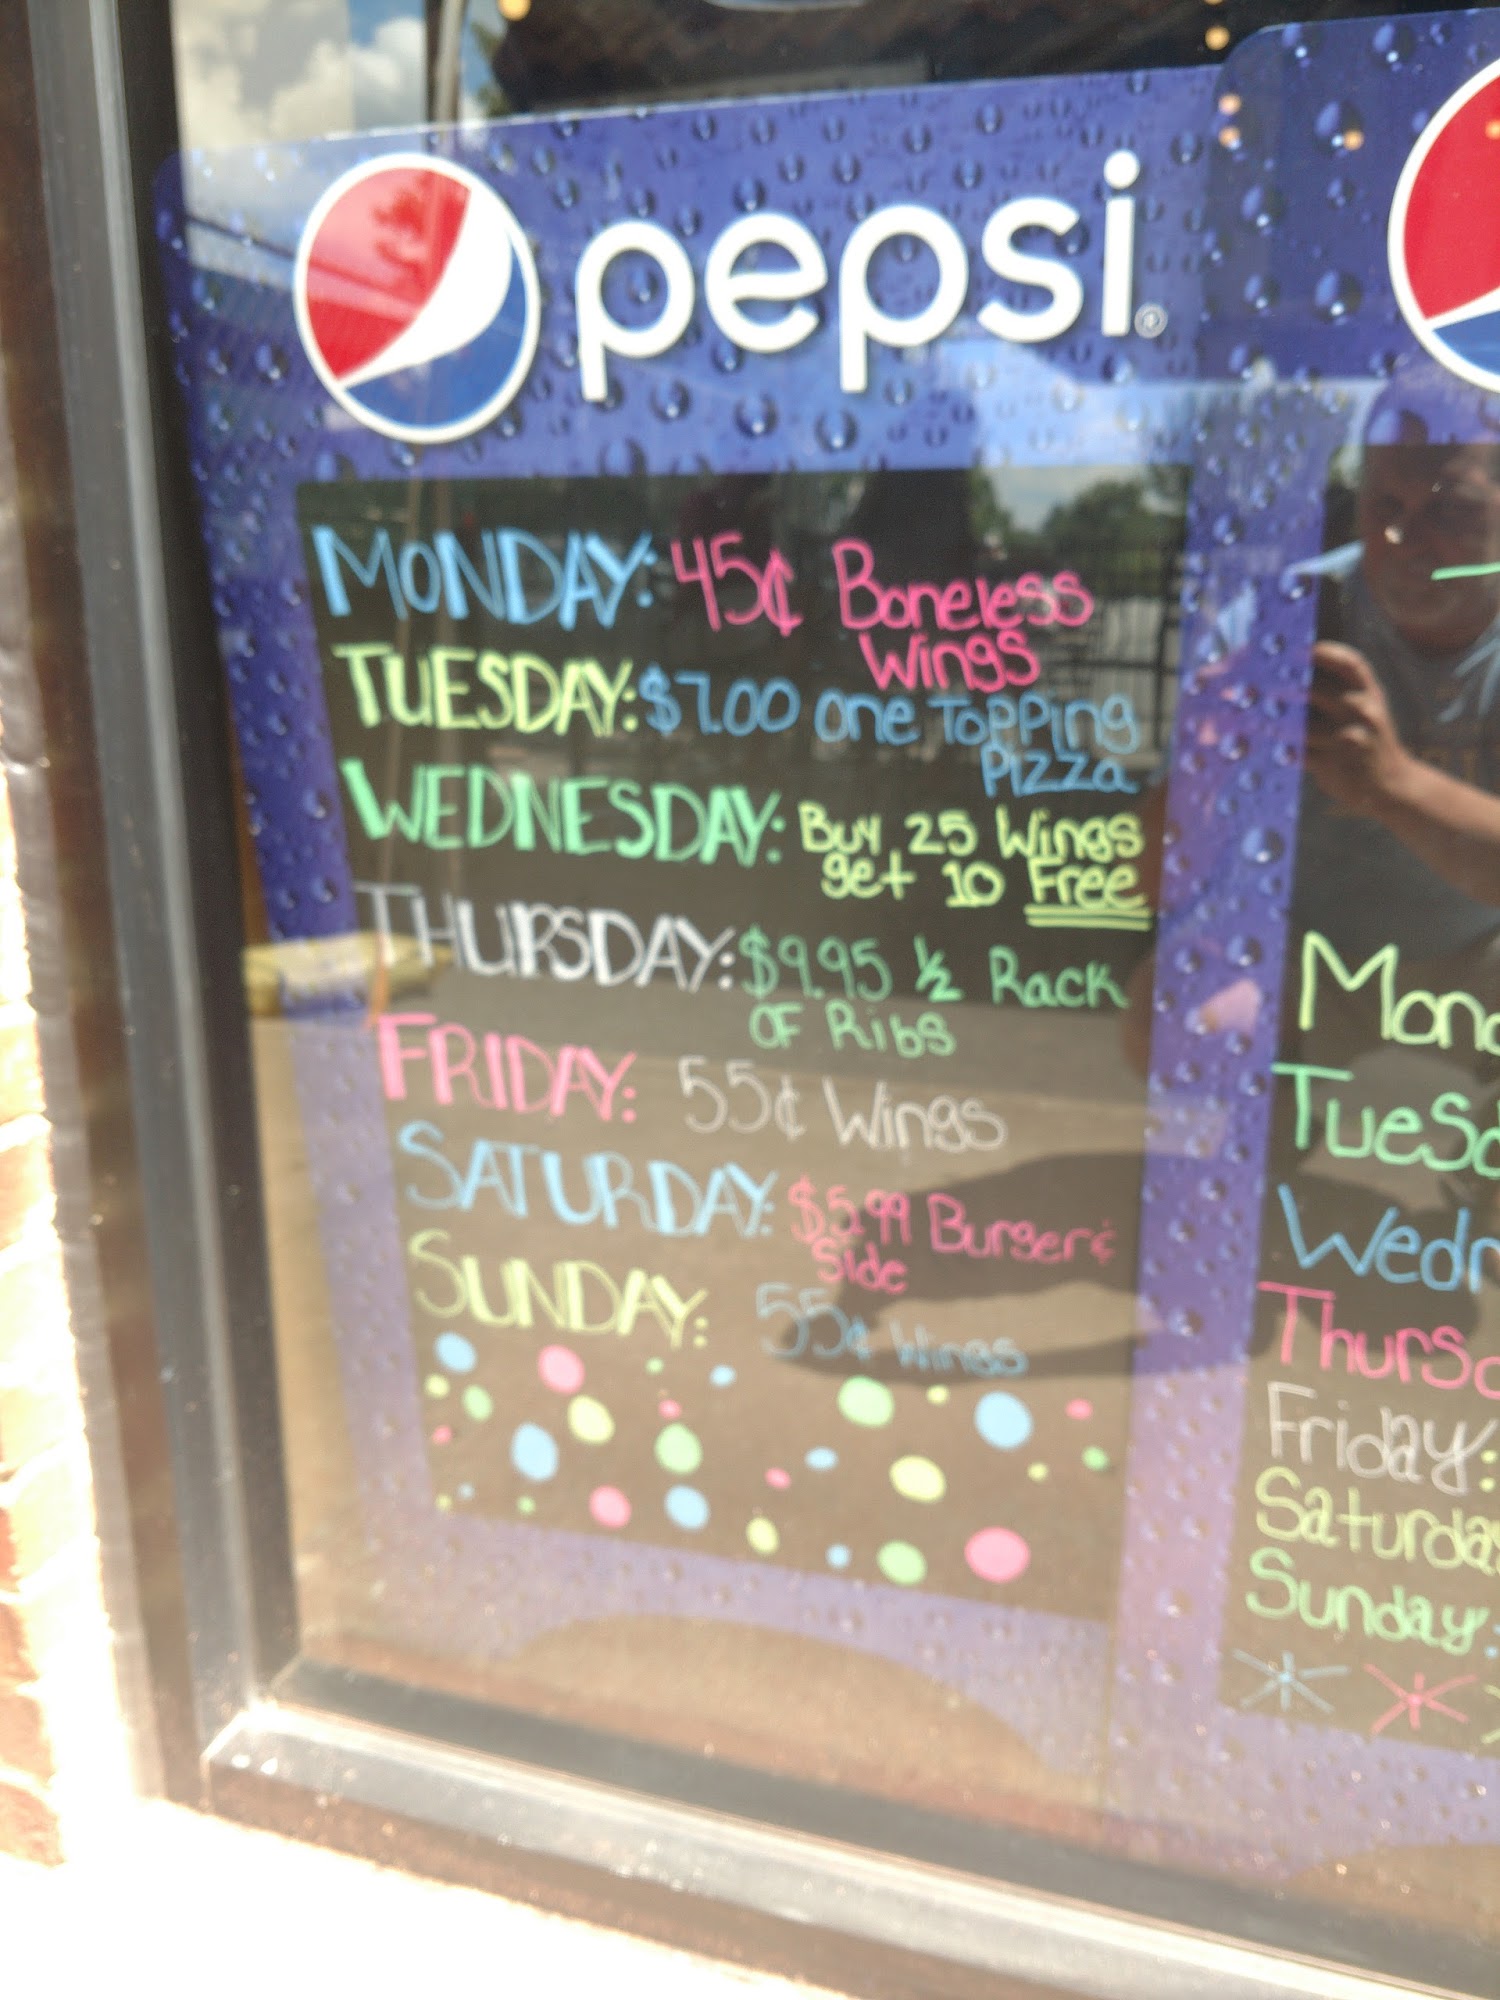 pepsi®
MONDAY: 45¢ Boneless
Wings
TUESDAY: $7.00 One Topping
Pizza
WEDNESDAY: Buy 25 Wings
get 10 Free
THURSDAY: $9.95 ½ Rack
OF Ribs
FRIDAY: 55¢ Wings
SATURDAY: $5.99 Burger &
Side
SUNDAY: 55¢ Wings
Mond
Tuesd
Wedn
Thursd
Friday:
Saturda
Sunday: